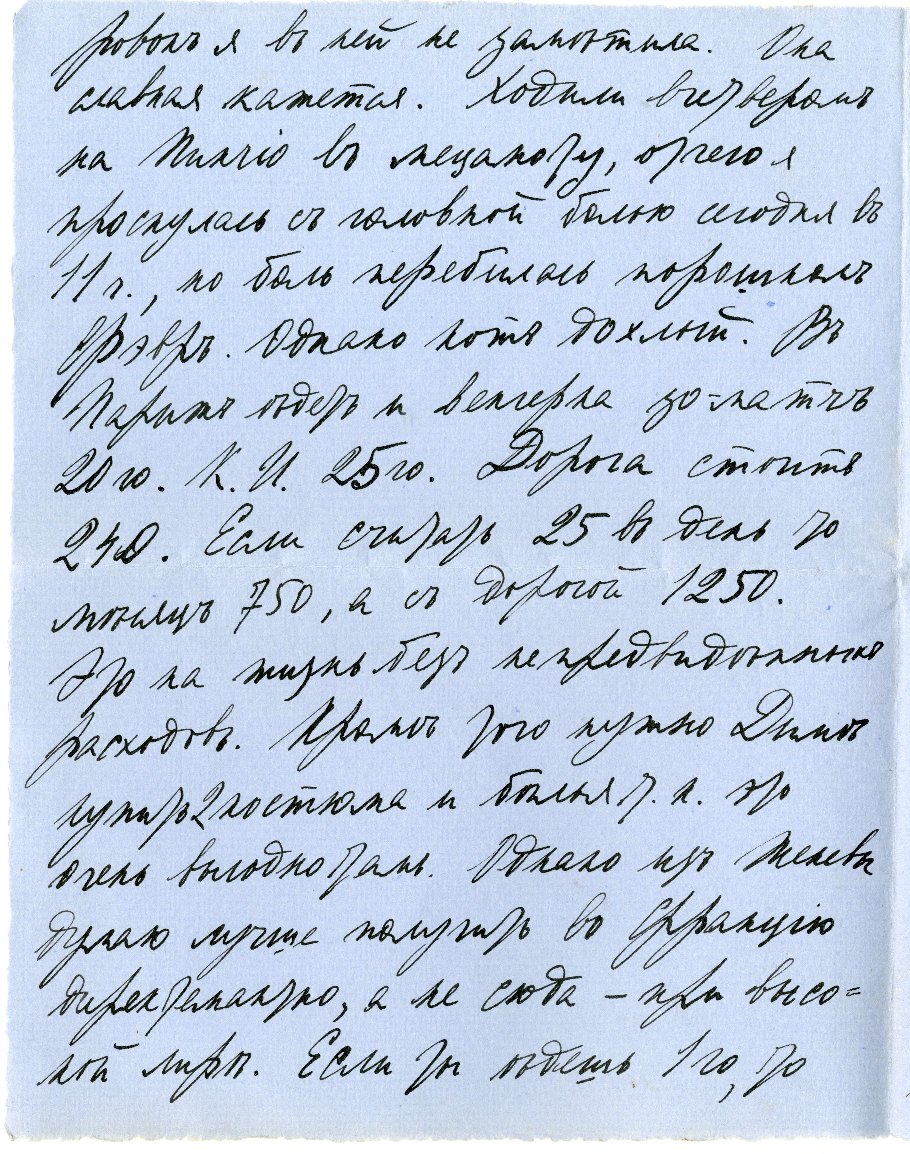 ровокъ я въ ней не замѣтила. Она
славная кажется. Ходили вчетверомъ
на Пинчіо въ , отчего я
проснулась съ головной болью сегодня въ
11 ч., но боль перебилась порошкомъ
Фэвръ. Однако котъ дохлый. Въ
Парижъ ѣдетъ и венгерка
20го. К. И. 25го. Дорога стоитъ
240. Если считать 25 въ день то
мѣсяцъ 750, а съ дорогой 1250.
Это на жизнь безъ непредвидѣнныхъ
расходовъ. Кромѣ того нужно Димѣ
купить 2 костюма и бѣлья т. к. это
очень выгодно тамъ. Однако изъ Женевы
думаю лучше получить во Францію
, а не сюда – при высо=
кой лирѣ. Если ты ѣдешь 1го, то